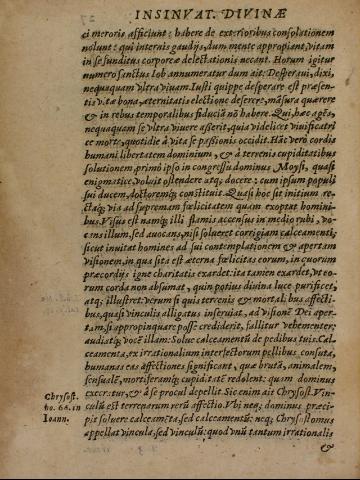 INSINVAT. DIVINÆ
ei meroris afficiunt: habere de exterioribus consolationem
nolunt: qui internis gaudijs, dum mente appropiant, vitam
in se funditus corporeæ delectationis necant. Horum igitur
numero sanctus Iob annumeratur dum ait: Desperaui, dixi,
nequaquam vltra viuam. Iusti quippe desperare est præsen-
tis vitæ bona, æternitatis electione deserere, mãsura quærere
& in rebus temporalibus fiduciã nõ habere. Qui, hæc agẽs,
nequaquam se vltra viuere asserit, quia videlicet viuificatri
ce morte, quotidie à vita se passionis occidit. Hãc verò cordis
humani libertatem dominium, & à terrenis cupiditatibus
solutionem, primo ipso in congressu dominus Moysi, quasi
enigmatice, voluit ostendere atq; docere: cum ipsum populi
sui ducem, doctoremq; constituit. Quasi hoc sit initium re-
ctaq; via ad supremam fœlicitatem quam exoptat homini-
bus. Visus est namq; illi flamis accensus in medio rubi, vo-
cans illum, sed auocans, nisi solueret corrigiam calceamenti;
sicut inuitat homines ad sui contemplationem & apertam
visionem, in qua sita est æterna fœlicitas eorum, in quorum
præcordijs igne charitatis exardet: ita tamen exardet, vt eo-
rum corda non absumat, quin potius diuina luce purificet,
atq; illustret. verum si quis terrenis & mortalibus affecti-
bus, quasi vinculis alligatus inseruiat, ad visionẽ Dei aper-
tam, si appropinquare posse crediderit, fallitur vehementer;
audiatq; vocẽ illam: Solue calceamentũ de pedibus tuis. Cal-
ceamenta, ex irrationalium interfectorum pellibus consuta,
humanas eas affectiones significant, quæ brutã, animalem,
sensualẽ, mortiferamq; cupiditatẽ redolent: quam dominus
execratur, & à se procul depellit. Sic enim ait Chrysost. Vin-
culũ est terrenarum rerũ affectio. Vbi neq; dominus præci-
pit soluere calceamẽta, sed calceamentũ: neq; Chrysostomus
appellat vincula, sed vinculũ: quod vnũ tantum irrationalis
&
Chrysost.
ho. 66. in
Ioann.